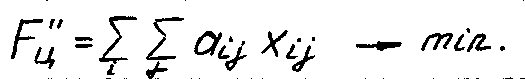 F″ц = Σi Σj aij xij → min.